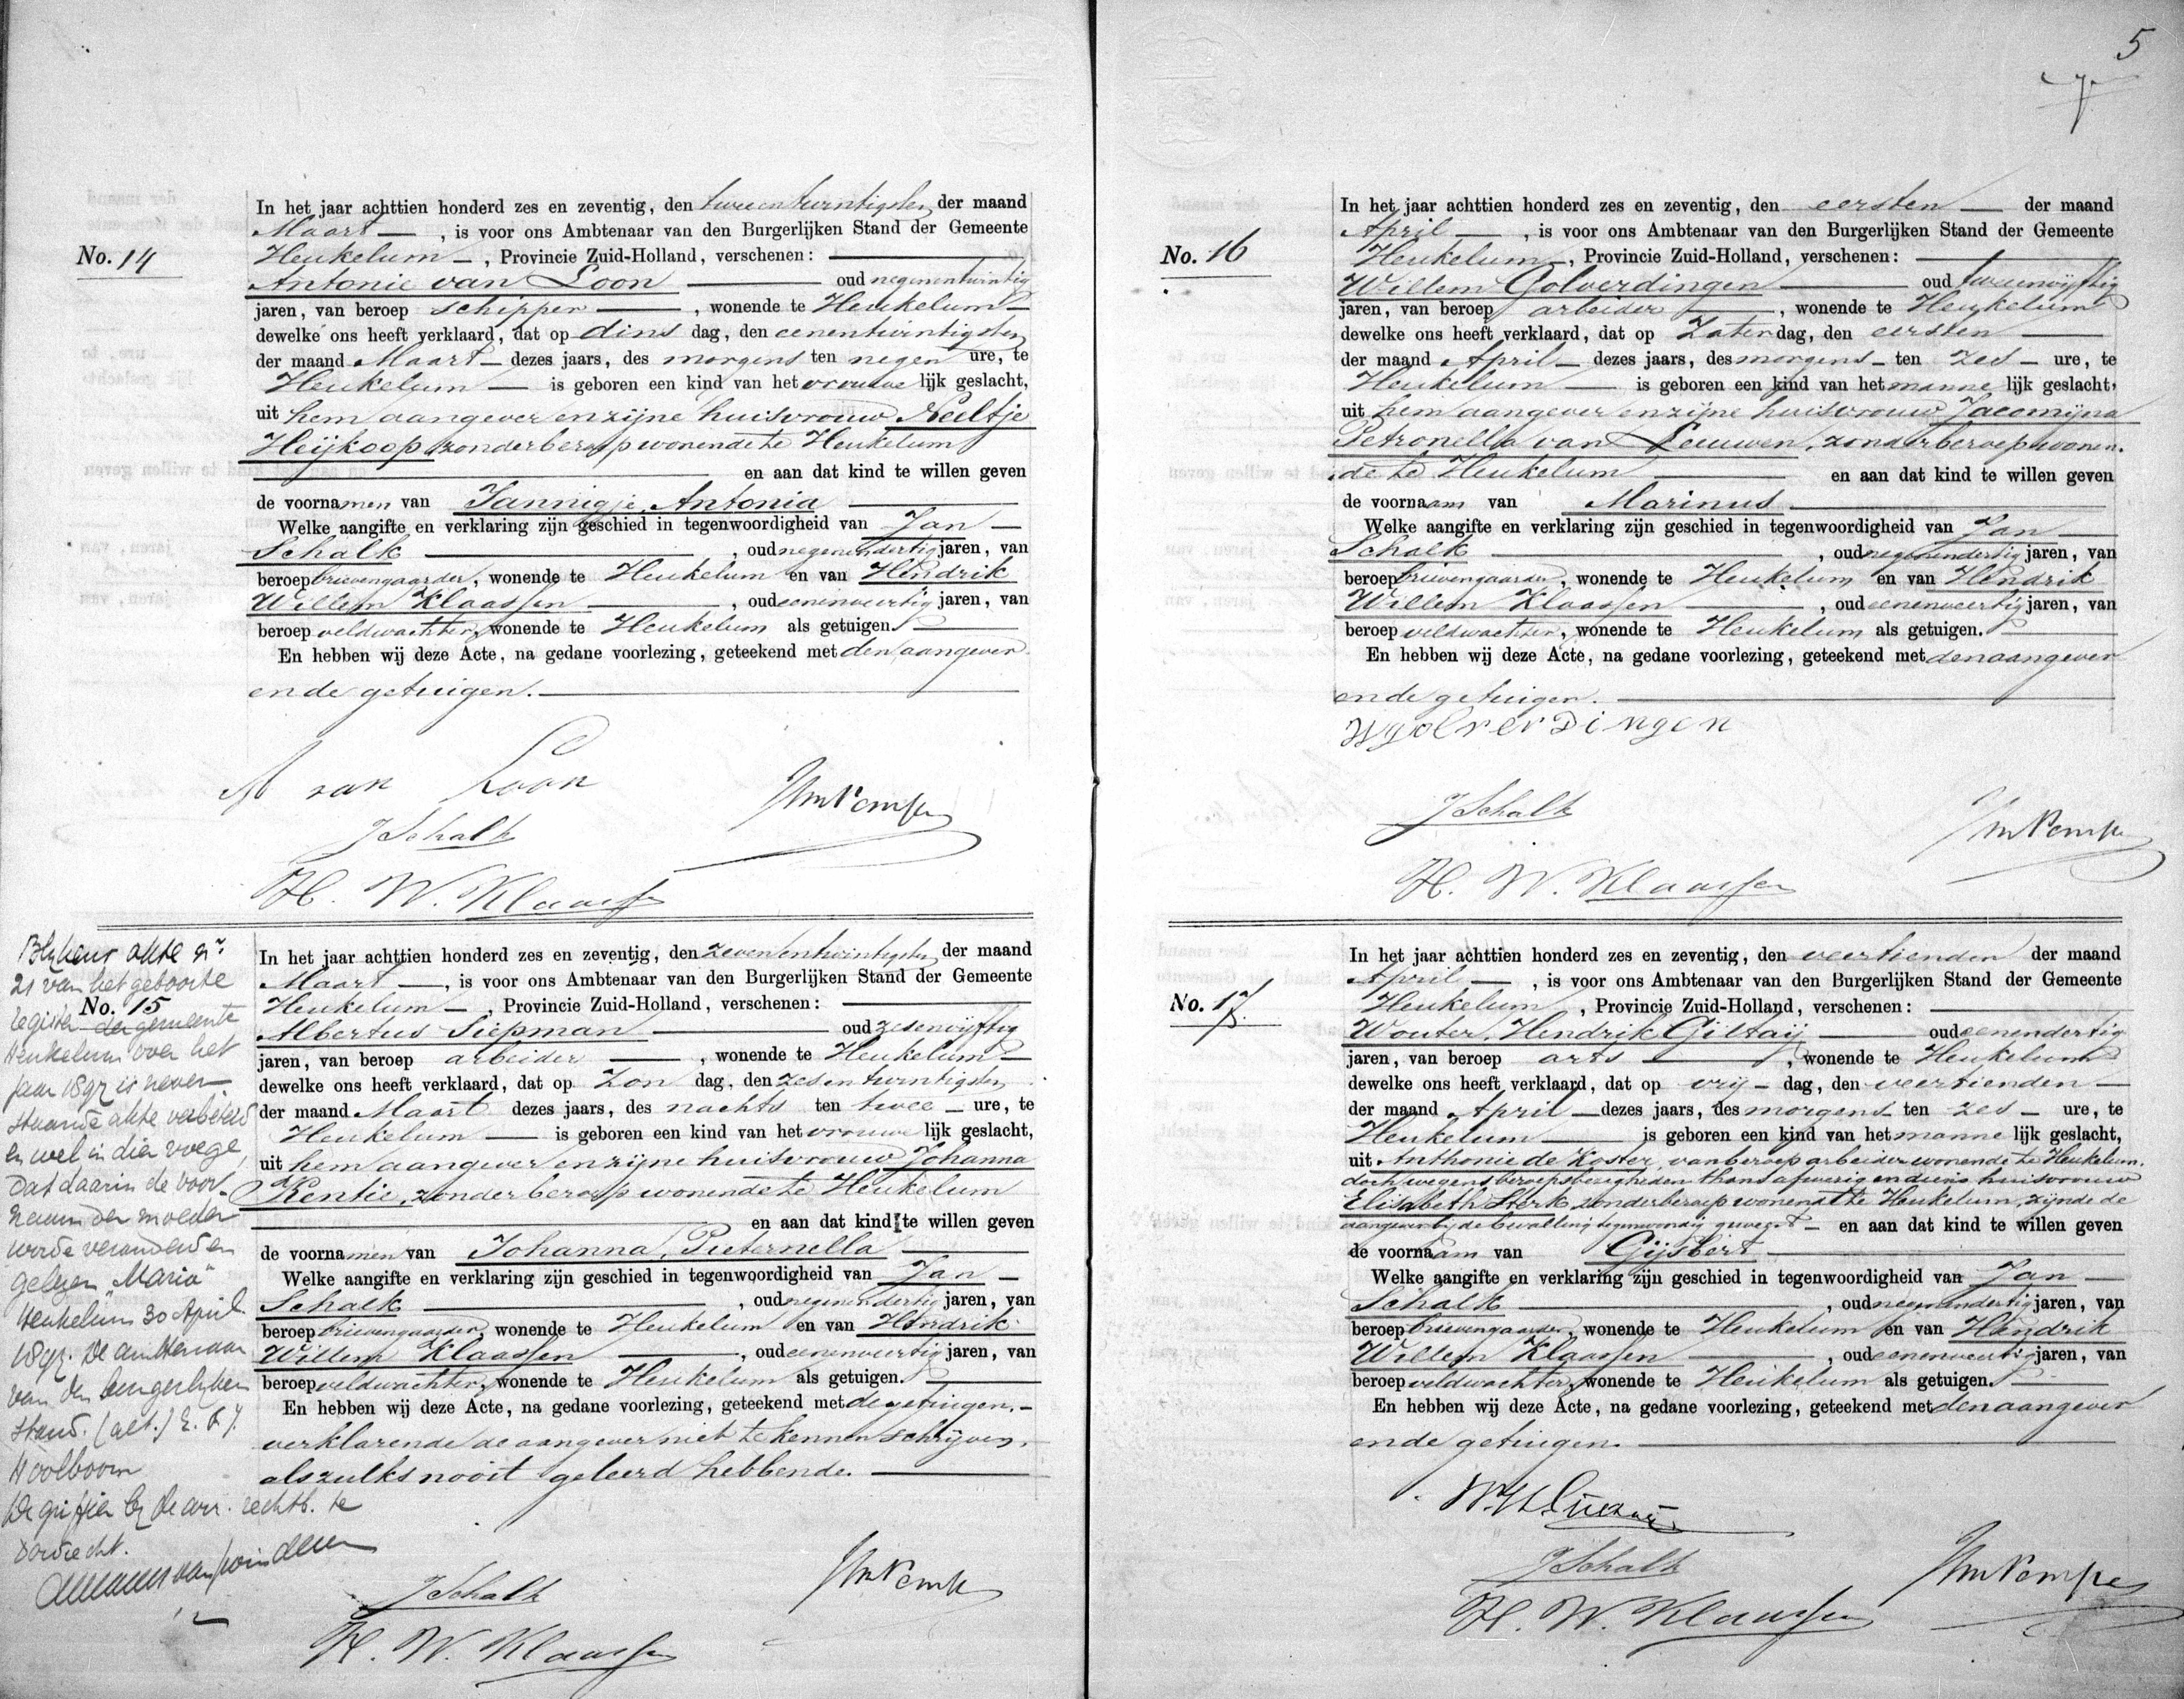 No. 14
In het jaar achttien honderd zes en zeventig, den tweeentwintigsten der maand
Maart —, is voor ons Ambtenaar van den Burgerlijken Stand der Gemeente
Heukelum —, Provincie Zuid-Holland, verschenen: —
Antonie van Loon — oud negenentwintig
jaren, van beroep schipper —, wonende te Heukelum —
dewelke ons heeft verklaard, dat op dins dag, den eenentwintigsten
der maand Maart — dezes jaars, des morgens ten negen ure, te
Heukelum — is geboren een kind van het vrouwe lijk geslacht,
uit hem aangever en zijne huisvrouw Neeltje
Heijkoop, zonder beroep wonende te Heukelum
— en aan dat kind te willen geven
de voornamen van Jannigje, Antonia —
Welke aangifte en verklaring zijn geschied in tegenwoordigheid van Jan —
Schalk —, oud negenendertig jaren, van
beroep brievengaarder, wonende te Heukelum en van Hendrik
Willem Klaassen —, oud eenenveertig jaren, van
beroep veldwachter, wonende te Heukelum als getuigen. —
En hebben wij deze Acte, na gedane voorlezing, geteekend met den aangever
en de getuigen. —
A van Loon
J Schalk
H. W. Klaassen
No. 15
In het jaar achttien honderd zes en zeventig, den zevenentwintigsten der maand
Maart —, is voor ons Ambtenaar van den Burgerlijken Stand der Gemeente
Heukelum —, Provincie Zuid-Holland, verschenen: —
Albertus Siepman — oud zesenvijftig
jaren, van beroep arbeider —, wonende te Heukelum —
dewelke ons heeft verklaard, dat op Zon dag, den zesentwintigsten
der maand Maart dezes jaars, des nachts ten twee — ure, te
Heukelum — is geboren een kind van het vrouwe lijk geslacht,
uit hem aangever en zijne huisvrouw Johanna
Kentie, zonder beroep wonende te Heukelum
— en aan dat kind te willen geven
de voornamen van Johanna, Pieternella —
Welke aangifte en verklaring zijn geschied in tegenwoordigheid van Jan —
Schalk —, oud negenendertig jaren, van
beroep brievengaarder, wonende te Heukelum en van Hendrik
Willem Klaassen —, oud eenenveertig jaren, van
beroep veldwachter, wonende te Heukelum als getuigen. —
En hebben wij deze Acte, na gedane voorlezing, geteekend met de getuigen, —
verklarende de aangever niet te kennen schrijven,
als zulks nooit geleerd hebbende. —
J Schalk
H. W. Klaassen
Blijkens akte nr.
21 van het geboorte
register der gemeente
Heukelum over het
jaar 1897 is neven-
staande akte verbeterd
en wel in dier voege,
dat daarin de voor-
naam der moeder
worde veranderd en
gelezen "Maria"
Heukelum 30 April
1897. De ambtenaar
van den burgerlijken
stand. (get.)
Hoolboom
De griffier bij de arr. rechtb. te
Dordrecht.
5
No. 16
In het jaar achttien honderd zes en zeventig, den eersten — der maand
April —, is voor ons Ambtenaar van den Burgerlijken Stand der Gemeente
Heukelum —, Provincie Zuid-Holland, verschenen: —
Willem Golverdingen — oud tweeenvijftig
jaren, van beroep arbeider —, wonende te Heukelum
dewelke ons heeft verklaard, dat op Zaterdag, den eersten —
der maand April — dezes jaars, des morgens — ten zes — ure, te
Heukelum — is geboren een kind van het manne lijk geslacht,
uit hem aangever en zijne huisvrouw Jacomijna
Petronella van Leeuwen, zonder beroep wonen-
de te Heukelum — en aan dat kind te willen geven
de voornaam van Marinus —
Welke aangifte en verklaring zijn geschied in tegenwoordigheid van Jan —
Schalk —, oud negenendertig jaren, van
beroep brievengaarder, wonende te Heukelum en van Hendrik
Willem Klaassen —, oud eenenveertig jaren, van
beroep veldwachter, wonende te Heukelum als getuigen. —
En hebben wij deze Acte, na gedane voorlezing, geteekend met den aangever
en de getuigen. —
W golverdingen
J Schalk
H. W. Klaassen
No. 17
In het jaar achttien honderd zes en zeventig, den veertienden der maand
April —, is voor ons Ambtenaar van den Burgerlijken Stand der Gemeente
Heukelum, Provincie Zuid-Holland, verschenen: —
Wouter, Hendrik Giltaij — oud eenendertig
jaren, van beroep arts —, wonende te Heukelum
dewelke ons heeft verklaard, dat op vrij — dag, den veertienden —
der maand April — dezes jaars, des morgens — ten zes — ure, te
Heukelum — is geboren een kind van het manne lijk geslacht,
uit Anthonie de Koster, van beroep arbeider wonende te Heukelum,
doch wegens beroepsbezigheden thans afwezig en diens huisvrouw
Elisabeth Sterk, zonder beroep wonende te Heukelum, zijnde de
aangever bij de bevalling tegenwoordig geweest — en aan dat kind te willen geven
de voornaam van Gijsbert —
Welke aangifte en verklaring zijn geschied in tegenwoordigheid van Jan —
Schalk —, oud negenendertig jaren, van
beroep brievengaarder, wonende te Heukelum en van Hendrik
Willem Klaassen —, oud eenenveertig jaren, van
beroep veldwachter, wonende te Heukelum als getuigen. —
En hebben wij deze Acte, na gedane voorlezing, geteekend met den aangever
en de getuigen. —
J Schalk
H. W. Klaassen